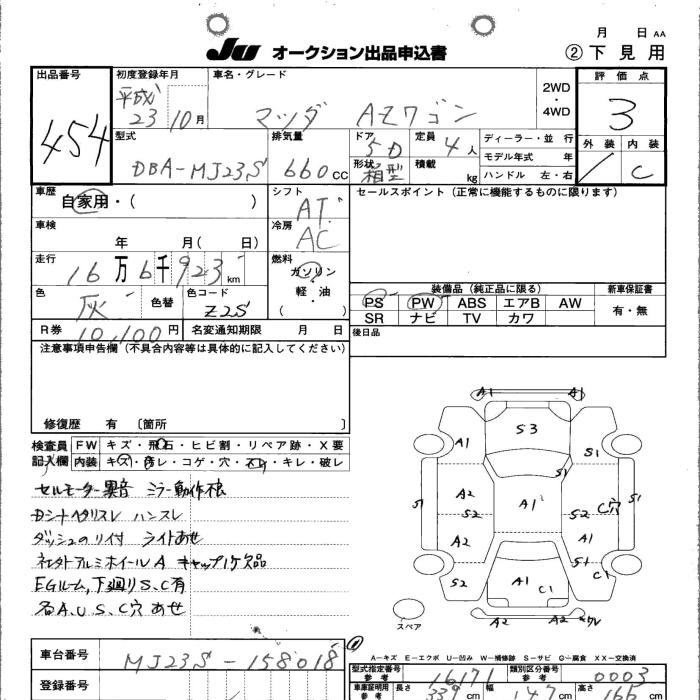 月 日 AA
JU オークション出品申込書 ② 下見用
出品番号 初度登録年月 車名・グレード 評価点
454 平成 23 10月 マツダ AZワゴン 2WD・4WD 3
外装 内装
C
型式 排気量 ドア 定員 ディーラー・並行
DBA-MJ23S 660cc 5D 4人 モデル年式 年
形状 積載 ハンドル 左・右
箱型 kg
車歴 シフト セールスポイント(正常に機能するものに限ります)
自家用・( ) AT
車検 冷房
年 月( 日) AC
走行 燃料
16万6千923km ガソリン・軽油・( )
色 色替 色コード 装備品(純正品に限る) 新車保証書
灰 Z2S PS PW ABS エアB AW 有・無
SR ナビ TV カワ
R券 10,100円 名変通知期限 月 日 後日品
注意事項申告欄(不具合内容等は具体的に記入してください)
修復歴 有〔箇所 〕
検査員記入欄 FW キズ・飛石・ヒビ割・リペア跡・X要
内装 キズ・汚レ・コゲ・穴・スレ・キレ・破レ
セルモーター異音 ミラー動作不良
Dシートヘタリスレ ハンスレ
ダッシュのリ付 ライトあせ
社外アルミホイールA キャップ1ケ欠品
EGルーム,下廻りS、C有
各A、U、S、C穴 あせ
A1 A1
S3
A1 S1
S1
A2 A1 C穴
S1 S2 S2 S1
A2 A1
A1 S1
S2 A1 C1 C1
A2 A2
スペア
A-キズ E-エクボ U-凹み W-補修跡 S-サビ C-腐食 XX-交換済
車台番号 MJ23S-158018
型式指定番号 参考 16171 類別区分番号 参考 0003
登録番号 車庫証明用 参考 長さ 339cm 幅 147cm 高さ 166cm